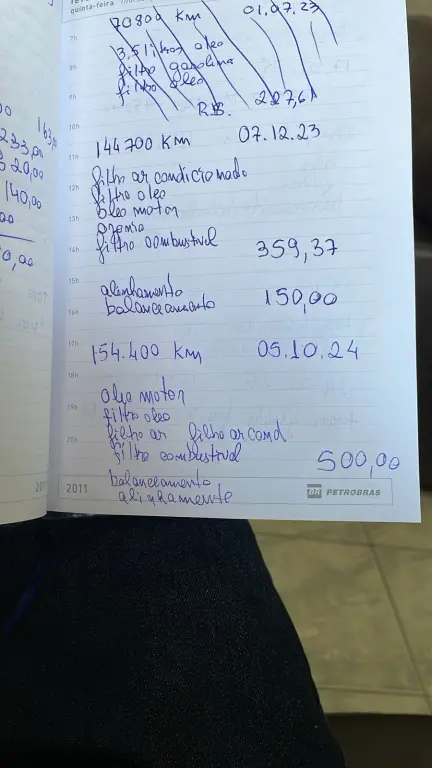 quinta-feira
7h
70800 Km 01.07.23
8h
3,5 litros oleo
filtro gasolina
9h
filtro oleo
R$. 227,61
10h
144700 Km 07.12.23
11h
filtro ar condicionado
12h
filtro oleo
oleo motor
13h
filtro combustivel 359,37
14h
15h
alinhamento
balanceamento 150,00
16h
17h
154.400 Km 05.10.24
18h
oleo motor
19h
filtro oleo
filtro ar filtro ar cond.
20h
filtro combustivel 500,00
2011 BR PETROBRAS
balanceamento
alinhamente
163,
233,00
320,00
140,00
00
0,00